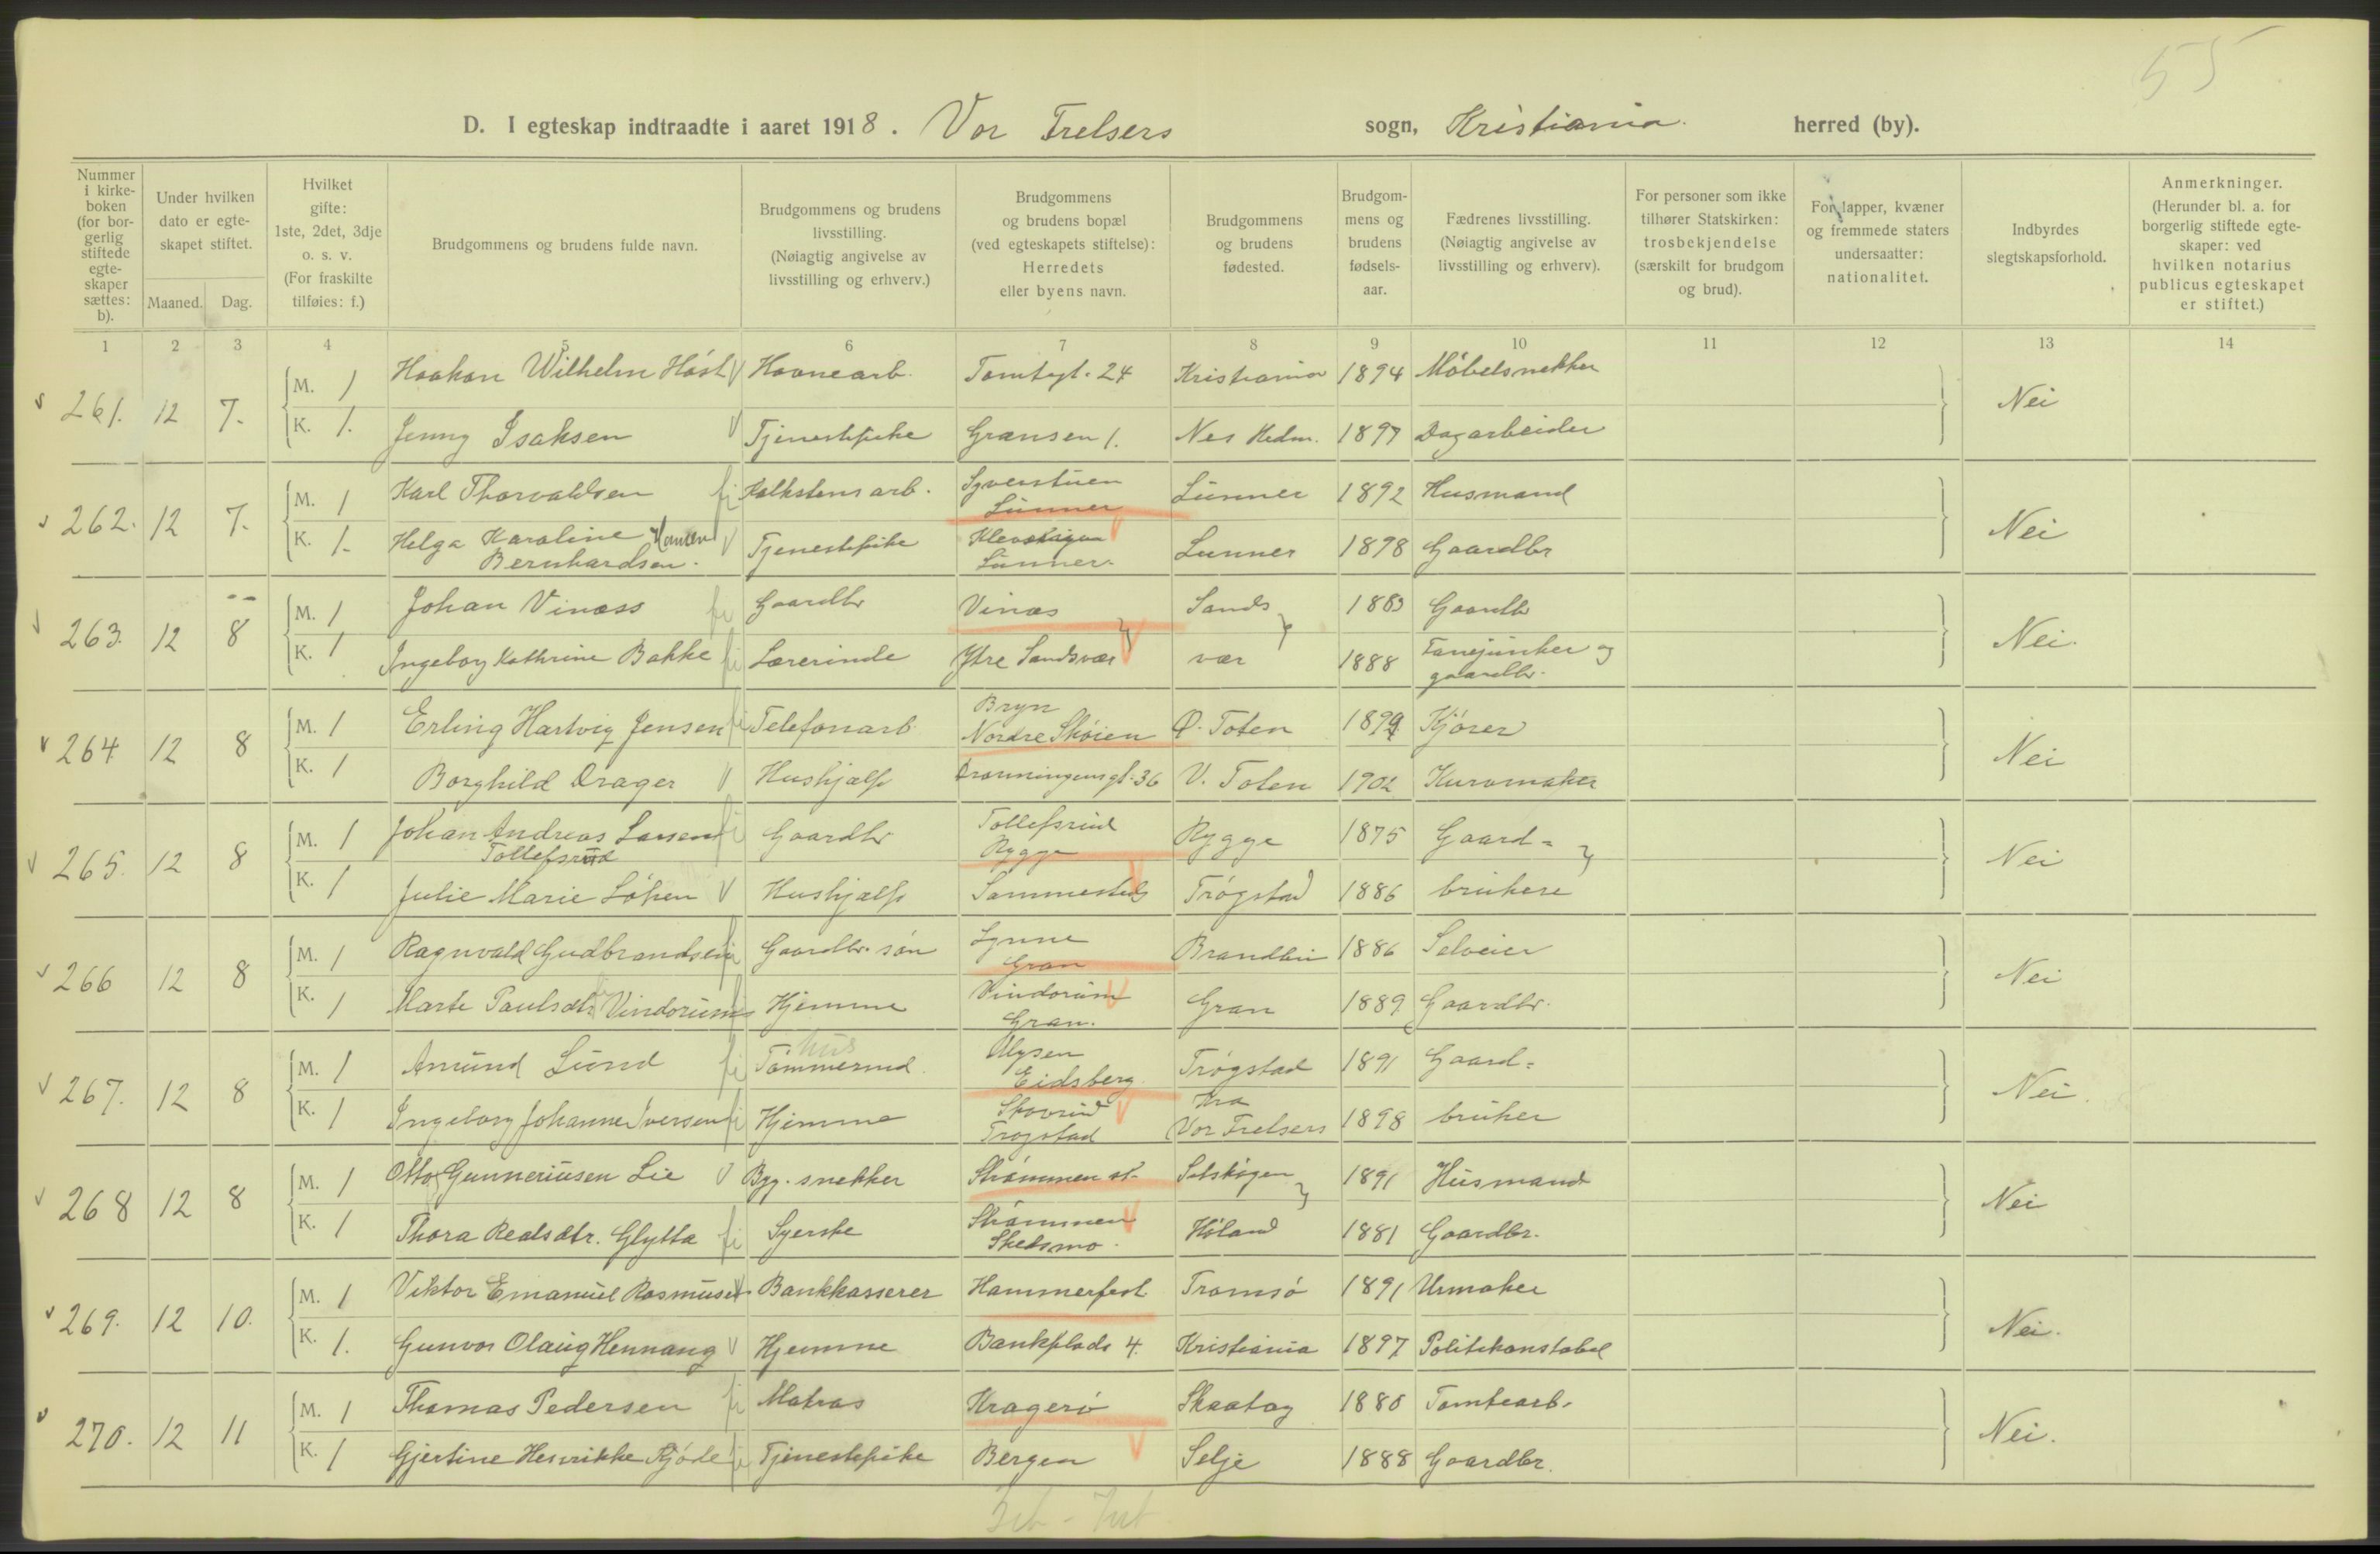 55
D. I egteskap indtraadte i aaret 1918. Vor Frelsers sogn, Kristiania herred (by).
Nummer i kirke-boken (for bor-gerlig stiftede egte-skaper sættes: b).
Under hvilken dato er egte-skapet stiftet.
Maaned. Dag.
Hvilket gifte: 1ste, 2det, 3dje o. s. v. (For fraskilte tilføies: f.)
Brudgommens og brudens fulde navn.
Brudgommens og brudens livsstilling. (Nøiagtig angivelse av livsstilling og erhverv.)
Brudgommens og brudens bopæl (ved egteskapets stiftelse): Herredets eller byens navn.
Brudgommens og brudens fødested.
Brudgom-mens og brudens fødsels-aar.
Fædrenes livsstilling. (Nøiagtig angivelse av livsstilling og erhverv).
For personer som ikke tilhører Statskirken: trosbekjendelse (særskilt for brudgom og brud).
For lapper, kvæner og fremmede staters undersaatter: nationalitet.
Indbyrdes slegtskapsforhold.
Anmerkninger. (Herunder bl. a. for borgerlig stiftede egte-skaper: ved hvilken notarius publicus egteskapet er stiftet.)
1 2 3 4 5 6 7 8 9 10 11 12 13 14
261. 12 7. M. 1 Haakon Wilhelm Høst Havnearb. Tomtegt. 24 Kristiania 1894 Møbelsnekker Nei
K. 1. Jenny Isaksen Tjenestepike Grænsen 1. Nes Hedm. 1897 Dagarbeider
262. 12 7. M. 1 Karl Thorvaldsen fi Kalkstensarb. Syverstuen Lunner Lunner 1892 Husmand Nei
K. 1. Helga Karoline Hansen Bernhardsen. Tjenestepike Lunner. Lunner 1898 Gaardbr
263. 12 8 M. 1 Johan Vinæss Gaardbr Vinæs Sands 1883 Gaardbr Nei.
K. 1 Ingeborg Kathrine Bakke fi Lærerinde Ytre Sandsvær vær 1888 Fanejunker og gaardbr.
264 12 8 M. 1 Erling Hartvig Jensen fi Telefonarb Bryn Nordre Skøien Ø. Toten 1899 Kjører Nei
K. 1 Borghild Drager Hushjælp Dronningensgt. 36 V. Toten 1902 Kurvmaker
265. 12 8 M. 1 Johan Andreas Larsen Tollefsrud fi Gaardbr Tollefsrud Rygge Rygge 1875 Gaard= Nei
K. 1 Julie Marie Løken Hushjælp Sammesteds Trøgstad 1886 brukere
266 12 8 M. 1 Ragnvald Gudbrandsen fi Gaardbr. søn Lynne Gran Brandbu 1886 Selveier Nei
K. 1 Marte Paulsdtr Vindorum Hjemme Vindorum Gran. Gran 1889 Gaardbr.
267. 12 8 M. 1 Amund Lund fi Tømmermd. hus Eidsberg Trøgstad 1891 Gaard= Nei.
K. 1 Ingeborg Johanne Iversen fi Hjemme Skovrud Trøgstad Kra Vor Frelsers 1898 bruker
268 12 8 M. 1 Otto Gunneriusen Lie Byg. snekker Strømmen st. Setskogen 1891 Husmand Nei
K. 1 Thora Realsdtr. Glytta fi Syerske Strømmen Skedsmo. Høland 1881 Gaardbr.
269. 12 10. M. 1 Viktor Emanuel Rasmusen Bankkasserer Hammerfest Tromsø 1891 Urmaker Nei.
K. 1. Gunvor Olaug Hennang Hjemme Bankplads 4. Kristiania 1897 Politikonstabel
270. 12 11 M. 1 Thomas Pedersen fi Matros Kragerø Skaatøy 1880 Tomtearb. Nei.
K. 1 Gjertine Henrikke Rjøde fi Tjenestepike Bergen Selje 1888 Gaardbr.